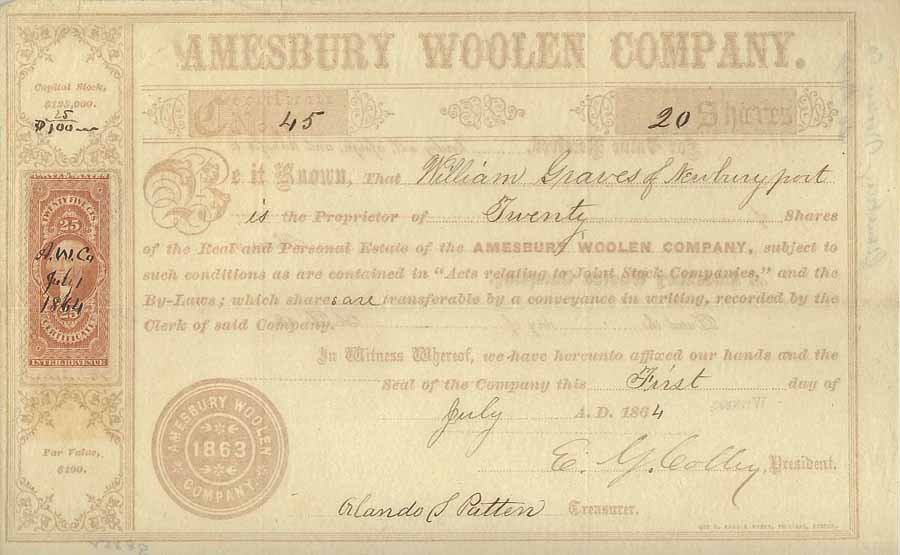 AMESBURY WOOLEN COMPANY.
Capital Stock,
$125,000.
25
$100
Certificate
No. 45
20 Shares
Be it Known, That William Graves of Newburyport
is the Proprietor of Twenty Shares
of the Real and Personal Estate of the AMESBURY WOOLEN COMPANY, subject to
such conditions as are contained in "Acts relating to Joint Stock Companies," and the
By-Laws; which shares are transferable by a conveyance in writing, recorded by the
Clerk of said Company.
In Witness Whereof, we have hereunto affixed our hands and the
Seal of the Company this First day of
July A. D. 1864
E. G. Colby, President.
Orlando S Patten Treasurer.
TWENTY FIVE CTS.
25
A.W. Co
July 1
1864
25
CERTIFICATE
INTER. REVENUE
Par Value,
$100.
AMESBURY WOOLEN
1863
COMPANY.